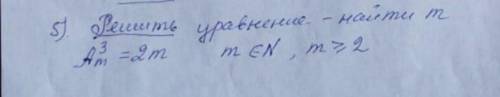 5). Решить уравнение - найти m
A³ₘ = 2m m ∈ N, m ≥ 2